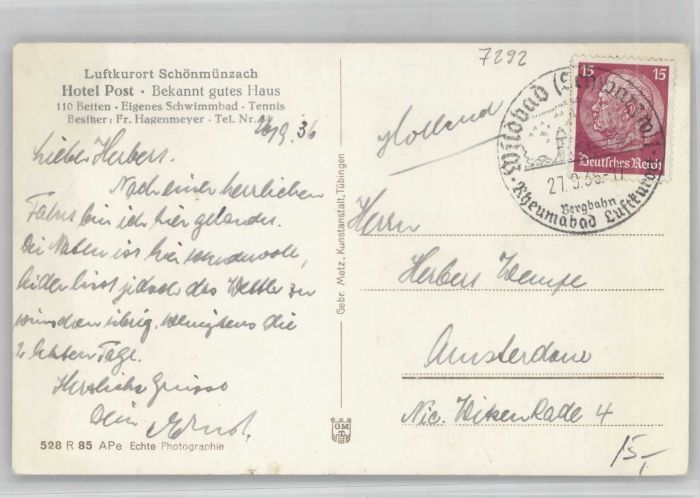 7292
Luftkurort Schönmünzach
Hotel Post · Bekannt gutes Haus
110 Betten · Eigenes Schwimmbad · Tennis
Besitzer: Fr. Hagenmeyer · Tel. Nr.
26/9. 36
Lieber Herbert.
Nach einer herrlichen
Fahrt bin ich hier gelandet.
Die Natur ist hier wundervoll,
leider lässt jedoch das Wetter zu
wünschen übrig, wenigstens die
2 letzten Tage.
Herzliche Grüsse
Dein Ernst.
528 R 85 APe Echte Photographie
Gebr. Metz, Kunstanstalt, Tübingen
GM
T
15 15
Deutsches Reich
Wildbad (Schwarzw.)
27.9.36
Bergbahn
Rheumabad Luftkurort
Holland
Herrn
Herbert Wempe
Amsterdam
Nic. Witsen Kade 4
15,-